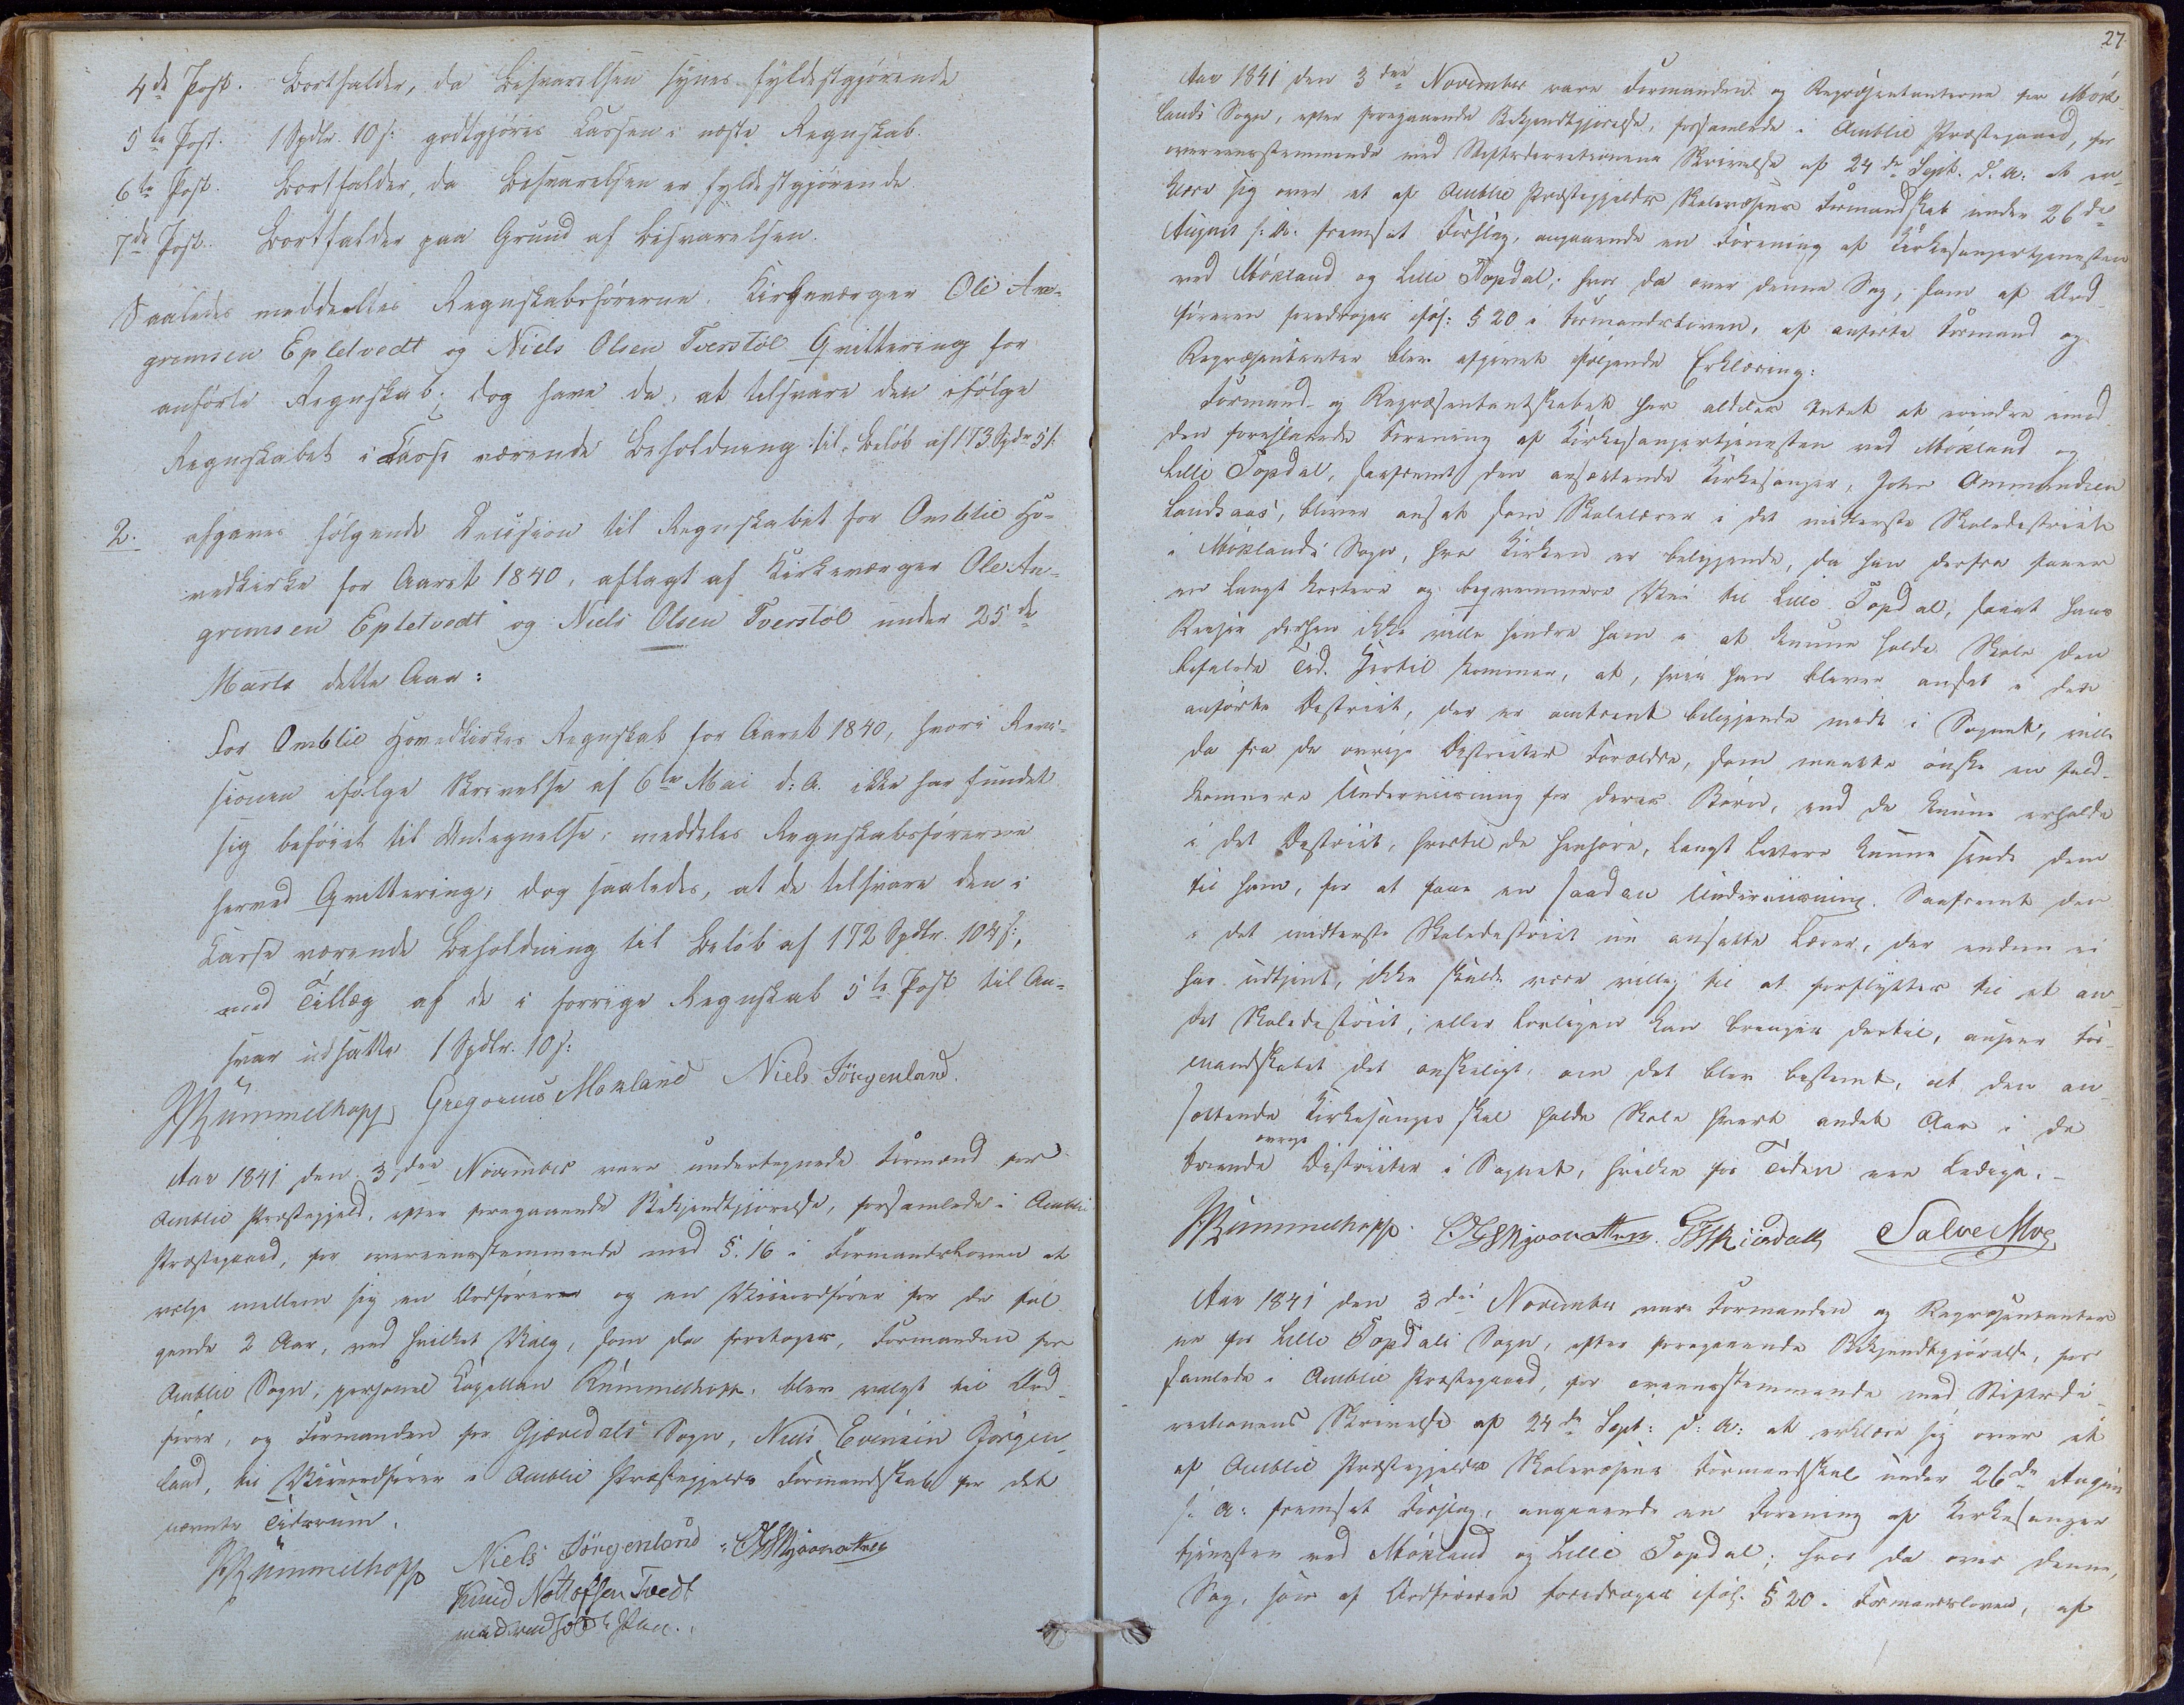 4de Post. Bortfalder, da Besvarelsen synes fyldestgjørende
5te Post. 1 Spdlr. 10 s: godtgjøres Cassen i næste Regnskab.
6te Post. Bortfalder, da Besvarelsen er fyldestgjørende.
7de Post. Bortfalder paa Grund af Besvarelsen.
Saaledes meddeeltes Regnskabsførerne, Kirkeværger Ole An-
grimsen Epletvedt og Niels Olsen Tverstøl Qvittering for
anførte Regnskab; dog have de, at tilsvare den ifølge
Regnskabet i Casse værende Beholdning til Beløb af 173 Spdr 5 s:
2. afgaves følgende Decision til Regnskabet for Omblie Ho-
vedkirke for Aaret 1840, aflagt af Kirkeværger Ole An-
grimsen Epletvedt og Niels Olsen Tverstøl under 25de
Marts dette Aar:
For Omblie Hovedkirkes Regnskab for Aaret 1840, hvori Revi-
sionen ifølge Skrivelse af 6te Mai d: A. ikke har fundet
sig beføiet til Antegnelse, meddeles Regnskabsførerne
herved Qvittering; dog saaledes, at de tilsvare den i
Casse værende Beholdning til Beløb af 172 Spdlr. 104 s:,
med Tillæg af de i forrige Regnskab 5te Post til An-
svar udsatte 1 Spdlr. 10 s:
Rümmelhoff Gregorius Morland Niels Jörgenland.
Aar 1841 den 3die November vare undertegnede Formænd for
Omblie Præstegjeld, efter foregaaende Bekjendtgjørelse, forsamlede i Omblie
Præstegaard, for overeensstemmende med §. 16 i Formandsloven at
vælge mellem sig en Ordfører og en Viceordfører for de føl-
gende 2 Aar, ved hvilket Valg, som da foretoges, Formanden for
Omblie Sogn, personel Capellan Rümmelhoff, blev valgt til Ord-
fører, og Formanden for Gjøvedals Sogn, Niels Evensen Jørgen-
land, til Viceordfører i Omblie Præstegjelds Formandskab for det
nævnte Tidsrum.
Rümmelhoff Niels Jörgenland
Knud Nottofsen Tvedt
med ført Pen.
27.
Aar 1841 den 3die November vare Formanden og Repræsentanterne for Møk-
lands Sogn, efter foregaaende Bekjendtgjørelse, forsamlede i Omblie Præstegaard, for
overeensstemmende med Stiftsdirectionens Skrivelse af 24de Sept. d. A: at er-
klære sig over et af Omblie Præstegjelds Skolevæsens Formandskab under 26de
August s. A. fremsat Forslag, angaaende en Forening af Kirkesangertjenesten
ved Møkland og Lille Topdal; hvor da over denne Sag, som af Ord-
føreren foredroges iføl: § 20 i Formandsloven, af anførte Formand og
Repræsentanter blev afgivet følgende Erklæring:
Formand- og Repræsentantskabet har aldeles Intet at erindre imod
den foreslaaede Forening af Kirkesangertjenesten ved Møkland og
Lille Topdal, saafremt den ansættende Kirkesanger, John Ommundsen
Landsaas, bliver ansat som Skolelærer i det midterste Skoledistrict
i Møklands Sogn, hvor Kirken er beliggende, da han derfra faaer
en langt kortere og beqvemmere Vei til Lille Topdal, saaat hans
Reiser derhen ikke ville hindre ham i at kunne holde Skole den
befalede Tid. Hertil kommer, at, hvis han bliver ansat i dette
anførte District, der er omtrent beliggende midt i Sognet, ville
de fra de øvrige Districter Forældre, som maatte ønske en fuld-
komnere Underviisning for deres Børn, end de kunne erholde
i det District, hvortil de henhøre, langt lettere kunne sende dem
til ham, for at faae en saadan Underviisning. Saafremt den
i det midterste Skoledistrict nu ansatte Lærer, der endnu ei
har udtjent, ikke skulde være villig til at forflyttes til et an-
det Skoledistrict, eller lovligen kan bringes dertil, anseer For-
mandskabet det ønskeligt, om det blev bestemt, at den an-
sættende Kirkesanger skal holde Skole hvert andet Aar i de
øvrige
tvende Districter i Sognet, hvilke for Tiden ere ledige.
Rümmelhoff. Salve Mog
Aar 1841 den 3die November vare Formanden og Repræsentanter-
ne for Lille Topdals Sogn, efter foregaaende Bekjendtgjørelse, for-
samlede i Omblie Præstegaard, for overeensstemmende med Stiftsdi-
rectionens Skrivelse af 24de Sept: d: A: at erklære sig over et
af Omblie Præstegjelds Skolevæsens Formandskab under 26de August
s: A: fremsat Forslag, angaaende en Forening af Kirkesanger-
tjenesten ved Møkland og Lille Topdal; hvor da over denne
Sag, som af Ordføreren foredroges iføl. § 20 i Formandsloven, af